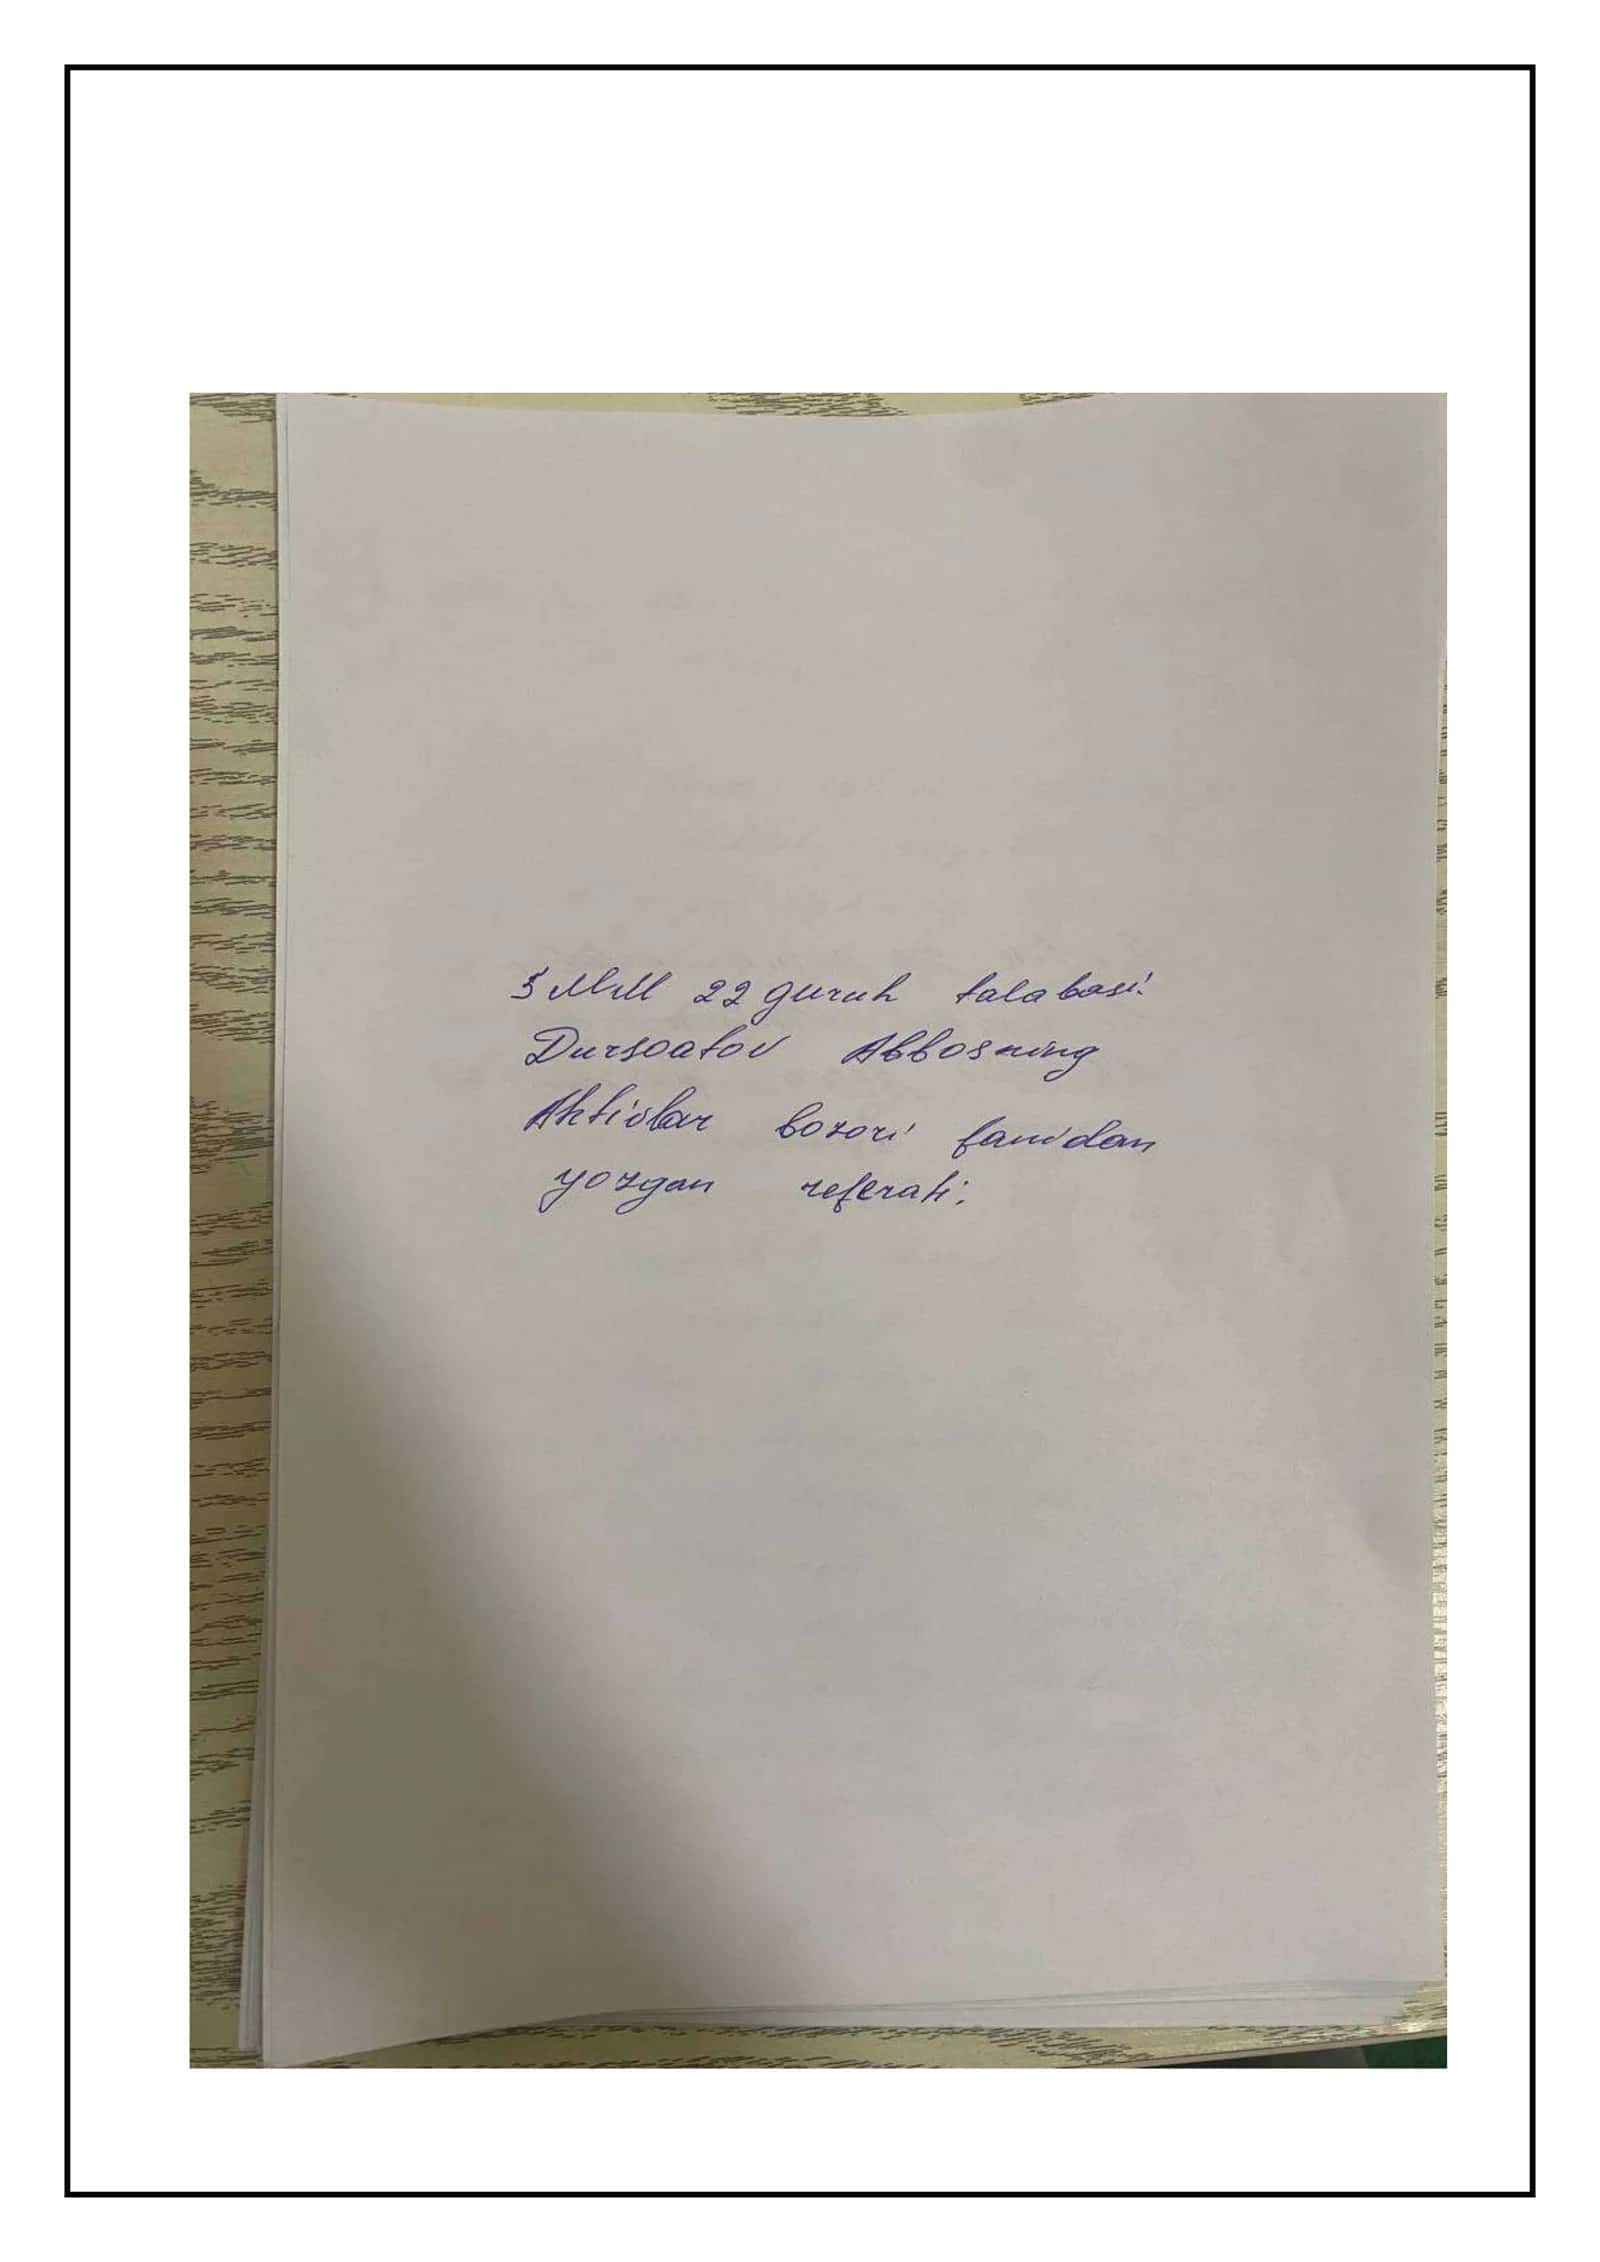 MM 22 guruh talabasi.
Dursoatov Abbosning
Aktivlar bozori fanidan
yozgan referati.